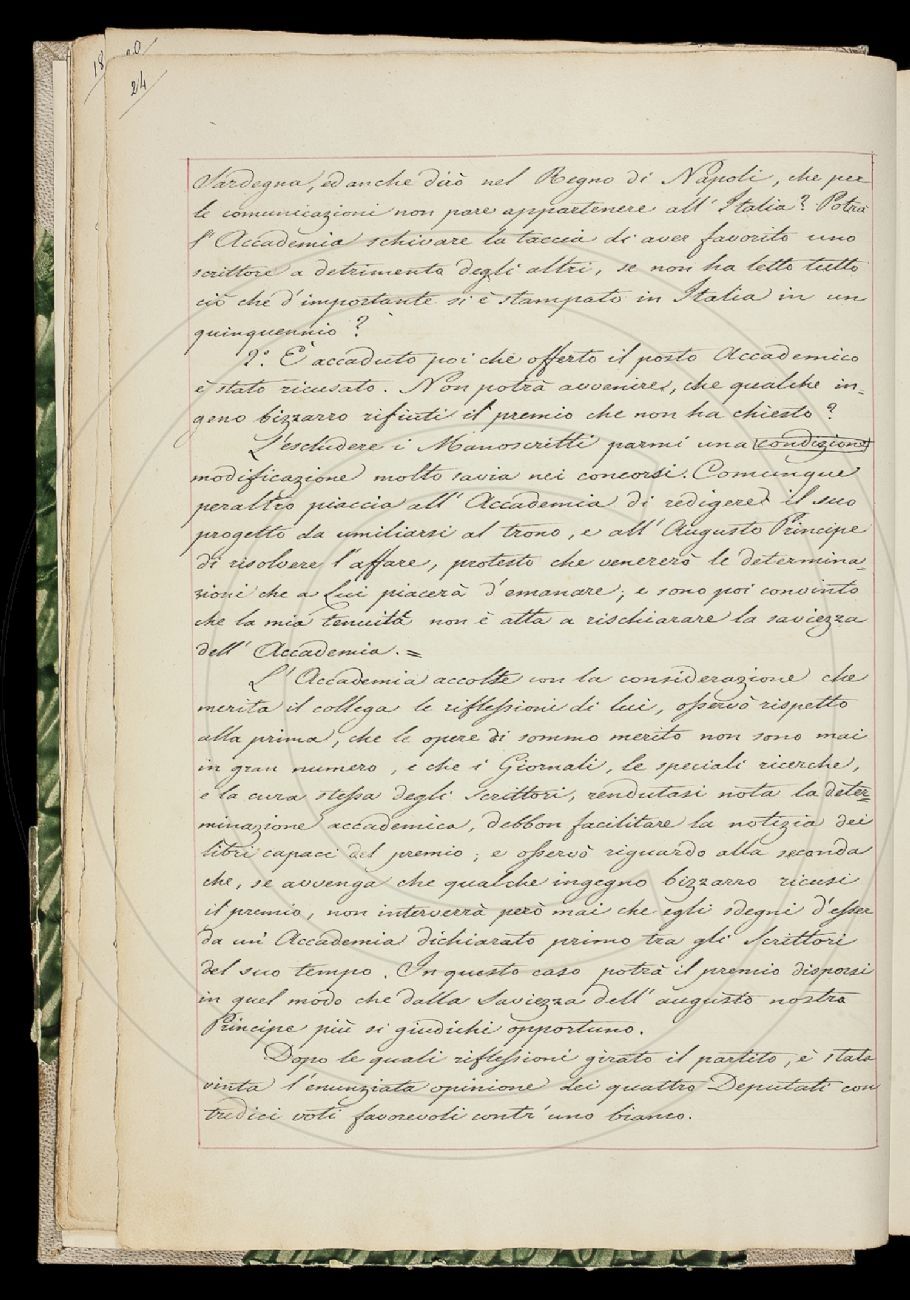 24
Sardegna, ed anche dirò nel Regno di Napoli, che per
le comunicazioni non pare appartenere all'Italia? Potrà
l'Accademia schivare la taccia di aver favorito uno
scrittore a detrimento degli altri, se non ha letto tutto
ciò che d'importante si è stampato in Italia in un
quinquennio?
2.° È accaduto poi che offerto il posto Accademico
è stato ricusato. Non potrà avvenire, che qualche in-
gegno bizzarro rifiuti il premio che non ha chiesto?
L'escludere i Manoscritti parmi una condizione
modificazione molto savia nei concorsi. Comunque
peraltro piaccia all'Accademia di redigere il suo
progetto da umiliarsi al trono, e all'Augusto Principe
di risolvere l'affare, protesto che venererò le determina-
zioni che a Lui piacerà d'emanare; e sono poi convinto
che la mia tenuità non è atta a rischiarare la saviezza
dell'Accademia. =
L'Accademia accolte con la considerazione che
merita il collega le riflessioni di lui, osservò rispetto
alla prima, che le opere di sommo merito non sono mai
in gran numero, e che i Giornali, le speciali ricerche,
e la cura stessa degli Scrittori, rendutasi nota la deter=
minazione accademica, debbon facilitare la notizia dei
libri capaci del premio; e osservò riguardo alla seconda
che, se avvenga che qualche ingegno bizzarro ricusi
il premio, non interverrà però mai che egli sdegni d'esser
da un'Accademia dichiarato primo tra gli Scrittori
del suo tempo. In questo caso potrà il premio disporsi
in quel modo che dalla Saviezza dell'augusto nostro
Principe più si giudichi opportuno.
Dopo le quali riflessioni girato il partito, è stata
vinta l'enunziata opinione dei quattro Deputati con
tredici voti favorevoli contr'uno bianco.